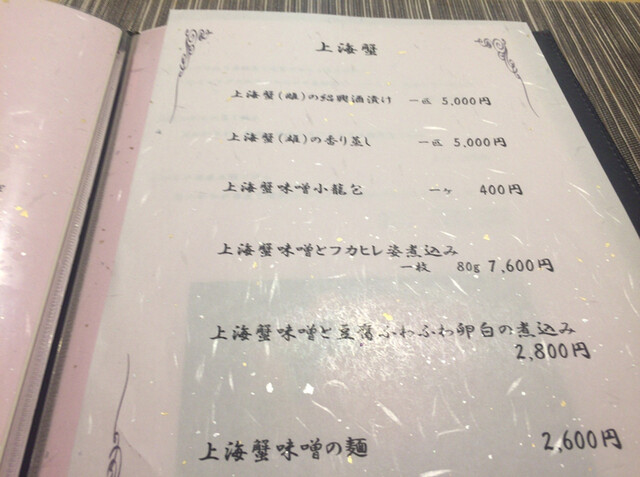 上海蟹
上海蟹(雌)の紹興酒漬け 一匹 5,000円
上海蟹(雄)の香り蒸し 一匹 5,000円
上海蟹味噌小龍包 一ケ 400円
上海蟹味噌とフカヒレ姿煮込み
一枚 80g 7,600円
上海蟹味噌と豆腐ふわふわ卵白の煮込み
2,800円
上海蟹味噌の麺 2,600円